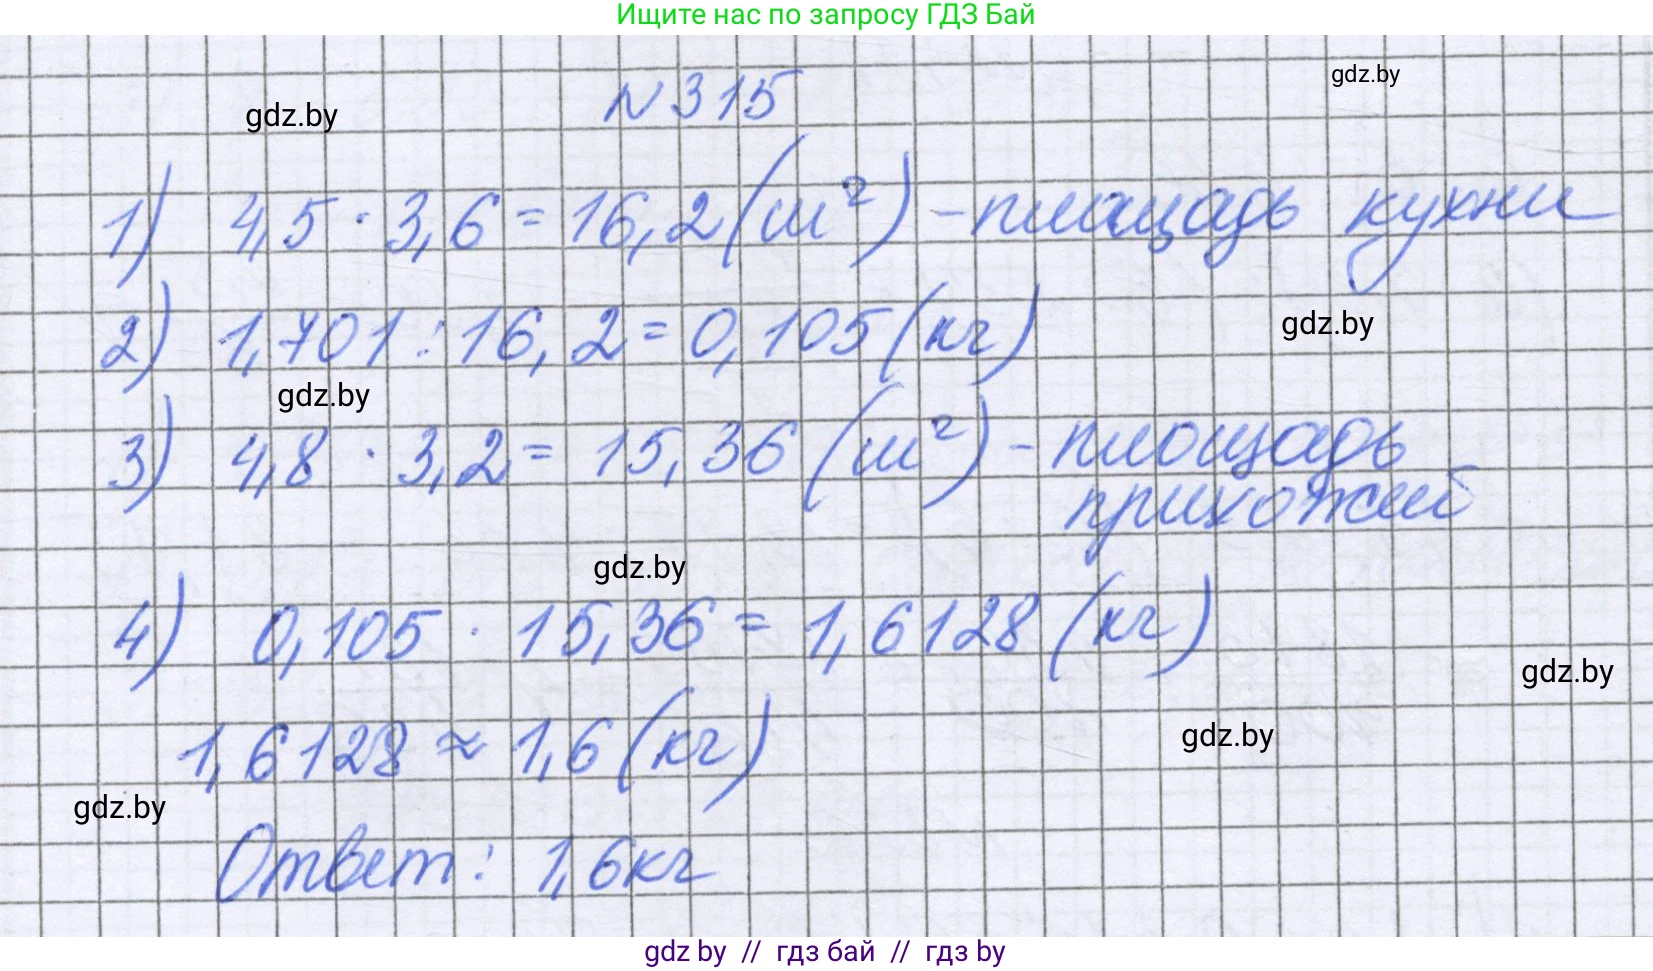 Ищите нас по запросу ГДЗ Бай
gdz.by
N315
gdz.by
1) 4,5 · 3,6 = 16,2 (м²) - площадь кухни
2) 1,701 : 16,2 = 0,105 (кг)
gdz.by
gdz.by
3) 4,8 · 3,2 = 15,36 (м²) - площадь
прихожей
gdz.by
4) 0,105 · 15,36 = 1,6128 (кг)
gdz.by
1,6128 ≈ 1,6 (кг)
gdz.by
gdz.by
Ответ: 1,6кг
gdz by // гдз бай // гдз by